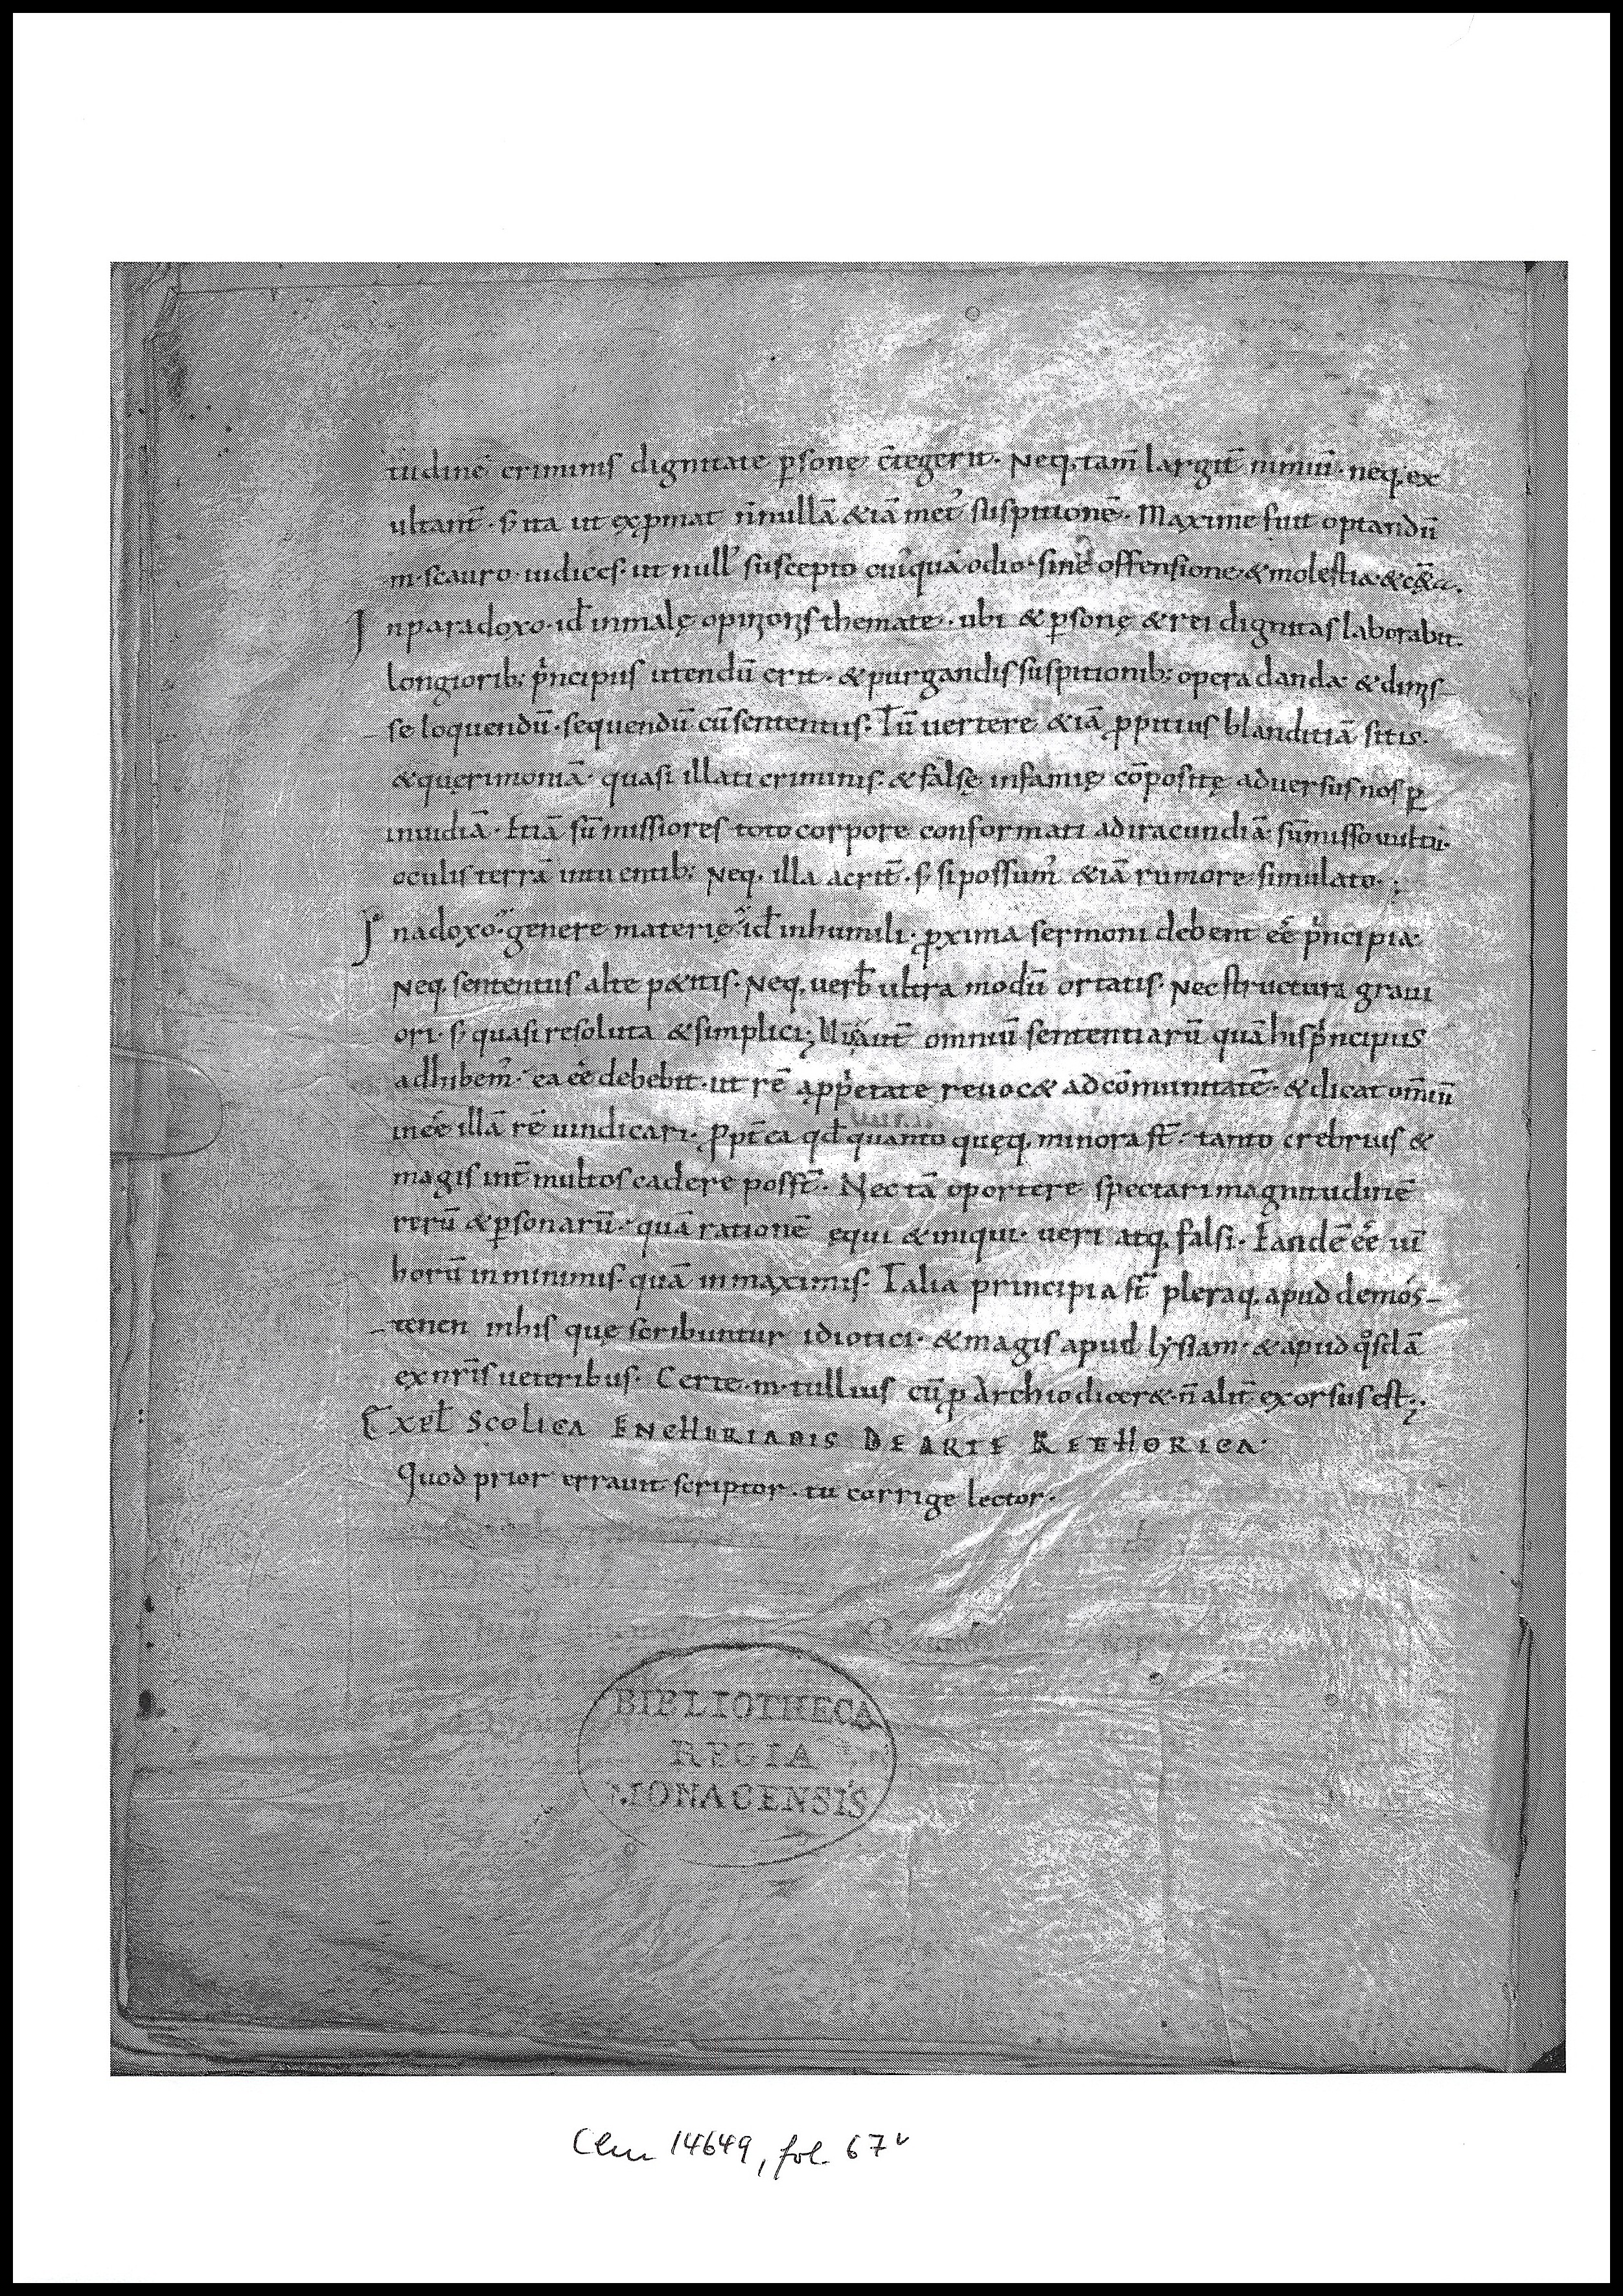 tudinē criminis dignitate p̄sonę c̄tegerit. Neq; tam̄ largit̄ nimiū. neq; ex
ultant̄. s; ita ut exp̄mat n̄nullā &iā met᾽ suspitionē. Maxime fuit optandū
m. scauro. iudices. ut null᾽ suscepto cui᾽quā odio. sine offensione. & molestia. & c&̨a.
In paradoxo. id̄ inmalę themate. ubi & p̄sonę & rei dignitas laborabit.
longiorib; p̄ncipiis utendū erit. & purgandis suspitionib; opera danda &
se loquendū. sequendū cū sententiis. Tū vertere &iā p̱pitius blanditiā sitis.
& quęrimoniā. quasi illati criminis. & falsę infamię cōpositę adversus nos p̱
inuidiā. Etiā sūmissiores toto corpore conformati ad iracundiā sūmisso uultu.
oculis terrā intuentib; Neq; illa acrit̄. s; si possum᾽ &iā rumore simulato.;
In adoxo genere materię id̄ inhumili. p̱xima sermoni debent eē p̄ncipia.
Neq; sententiis alte p&itis. Neq; verb̄ ultra modū ortatis. Nec structura graui
ori. s; quasi resoluta & simplici; aut̄ omniū sententiarū quā his p̄ncipiis
adhibem᾽. ea eē debebit. ut rē ap̱p̄etate reuoc& ad cōmunitatē. & dicat om̄iū
in eē illā rē uindicari. P̱pt̄ea qd̄ quanto quęq; minora st̄. tanto crebrius &
magis int̄ multos cadere posst̄. Nec tā oportere spectari magnitudinē
rerū & p̱sonarū. quā rationē ęqui & iniqui. veri atq; falsi. Eandē eē uī
horū inminimis. quā inmaximis. Talia principia st̄ pleraq; apud demós-
-tenen inhis quę scribuntur idiotici. & magis apud lẏsiam. & apud q°sdā
ex nr̄is ueteribus. Certe. m. tullius cū p̱ Archio dicer& n̄ alit̄ exorsus est;
Expl̄ Scolica ENCHIRIADIS DE ARTE RETHORICA.
Quod prior errauit scriptor. tu corrige lector.
BIBLIOTHECA
REGIA
MONACENSIS
Clm 14649, fol. 67v